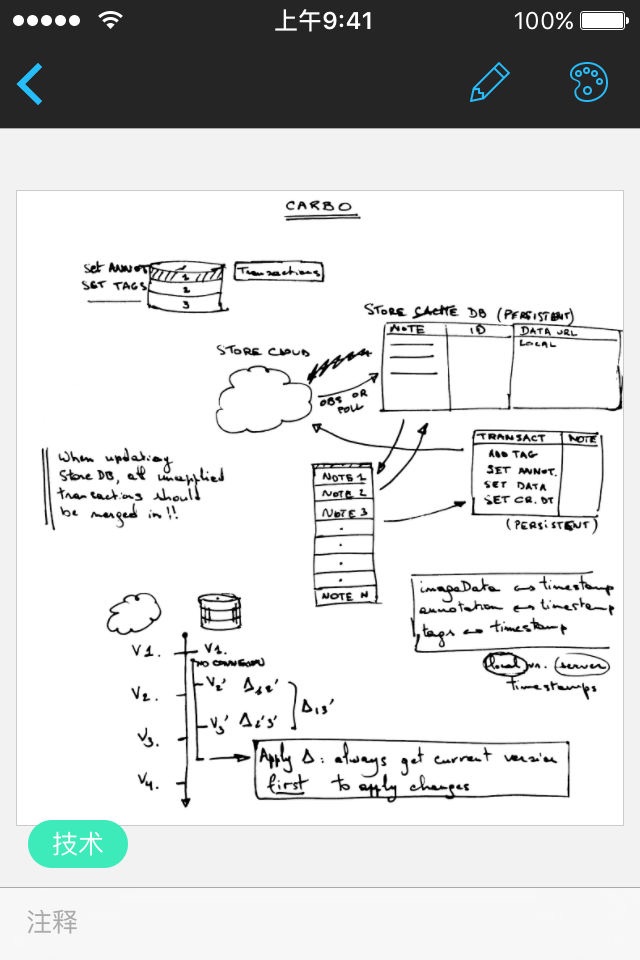 上午9:41
100%
CARBO
Set ANNOT
SET TAGS
1
2
3
Transactions
STORE CACHE DB (PERSISTENT)
NOTE ID DATA URL
LOCAL
STORE CLOUD
OBS OR
POLL
TRANSACT NOTE
ADD TAG
SET ANNOT.
SET DATA
SET CR. DT
(PERSISTENT)
When updating
Store DB, all unapplied
transactions should
be merged in!!
NOTE 1
NOTE 2
NOTE 3
NOTE N
imageData ↔ timestamp
annotation ↔ timestamp
tags ↔ timestamp
local vs. server
timestamps
V1. V1.
NO CONNEXION
V2. V2' Δ12'
V3' Δ2'3'
Δ13'
V3.
V4.
Apply Δ: always get current version
first to apply changes
技术
注释